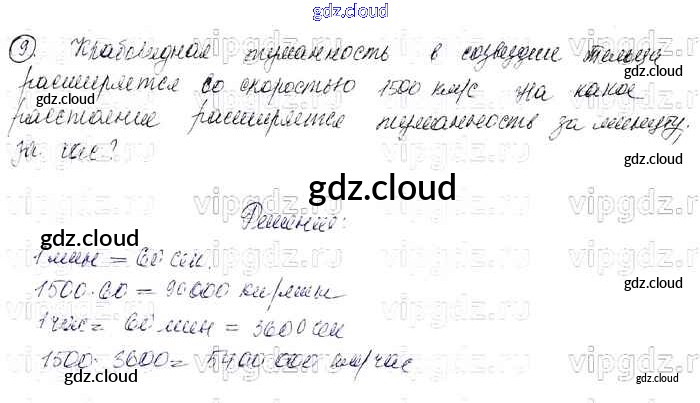 gdz.cloud
9. Крабовидная туманность в созвездии Тельца
расширяется со скоростью 1500 км/с На какое
gdz.cloud
gdz.cloud
расстояние расширяется туманность за минуту,
за час?
gdz.cloud
gdz.cloud
vipgdz.ru
Решение:
gdz.cloud
1 мин = 60 сек.
1500·60 = 90000 км/мин
gdz.cloud
1 час = 60 мин = 3600 сек
gdz.cloud
1500·3600 = 5400 000 км/час
gdz.cloud